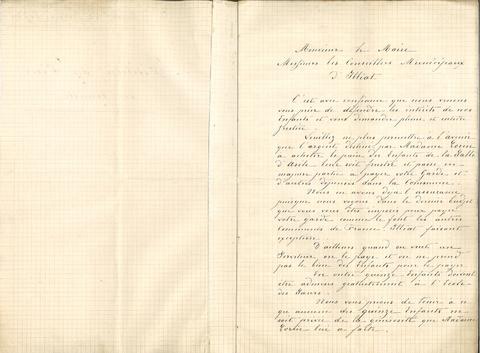 Monsieur le Maire
Messieurs les Conseillers Municipaux
d'Illiat
C'est avec confiance que nous venons
vous prier de défendre les intérêts de nos
Enfants et vous demander pleine et entière
justice.
Veuillez ne plus permettre à l'avenir
que l'argent destiné par Madame
à acheter le pain des Enfants de la Salle
d'Asile leur soit frustré et passe en
majeure partie à payer votre Garde et
d'autres dépenses dans la Commune.
Nous en avons déjà l'assurance
puisque nous voyons dans le dernier budget
que vous vous êtes imposés pour payer
votre garde comme le font les autres
Communes de France. Illiat faisant
exception.
D'ailleurs quand on veut un
Serviteur on le paye et on ne prend
pas le bien des Enfants pour le payer.
En outre quinze Enfants doivent
être admis gratuitement à l'Ecole
des Sœurs.
Nous vous prions de tenir à ce
que aucun des quinze Enfants ne
soit privé de la que Madame
a faite.